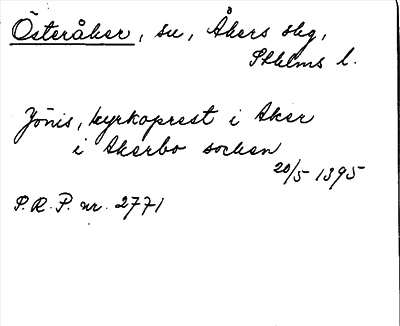 Österåker, su, Åkers skg,
Sthlms l.
Jönis, kyrkoprest i Aker
i Akerbo socken
20/5 1395
S.R.P. nr. 2771